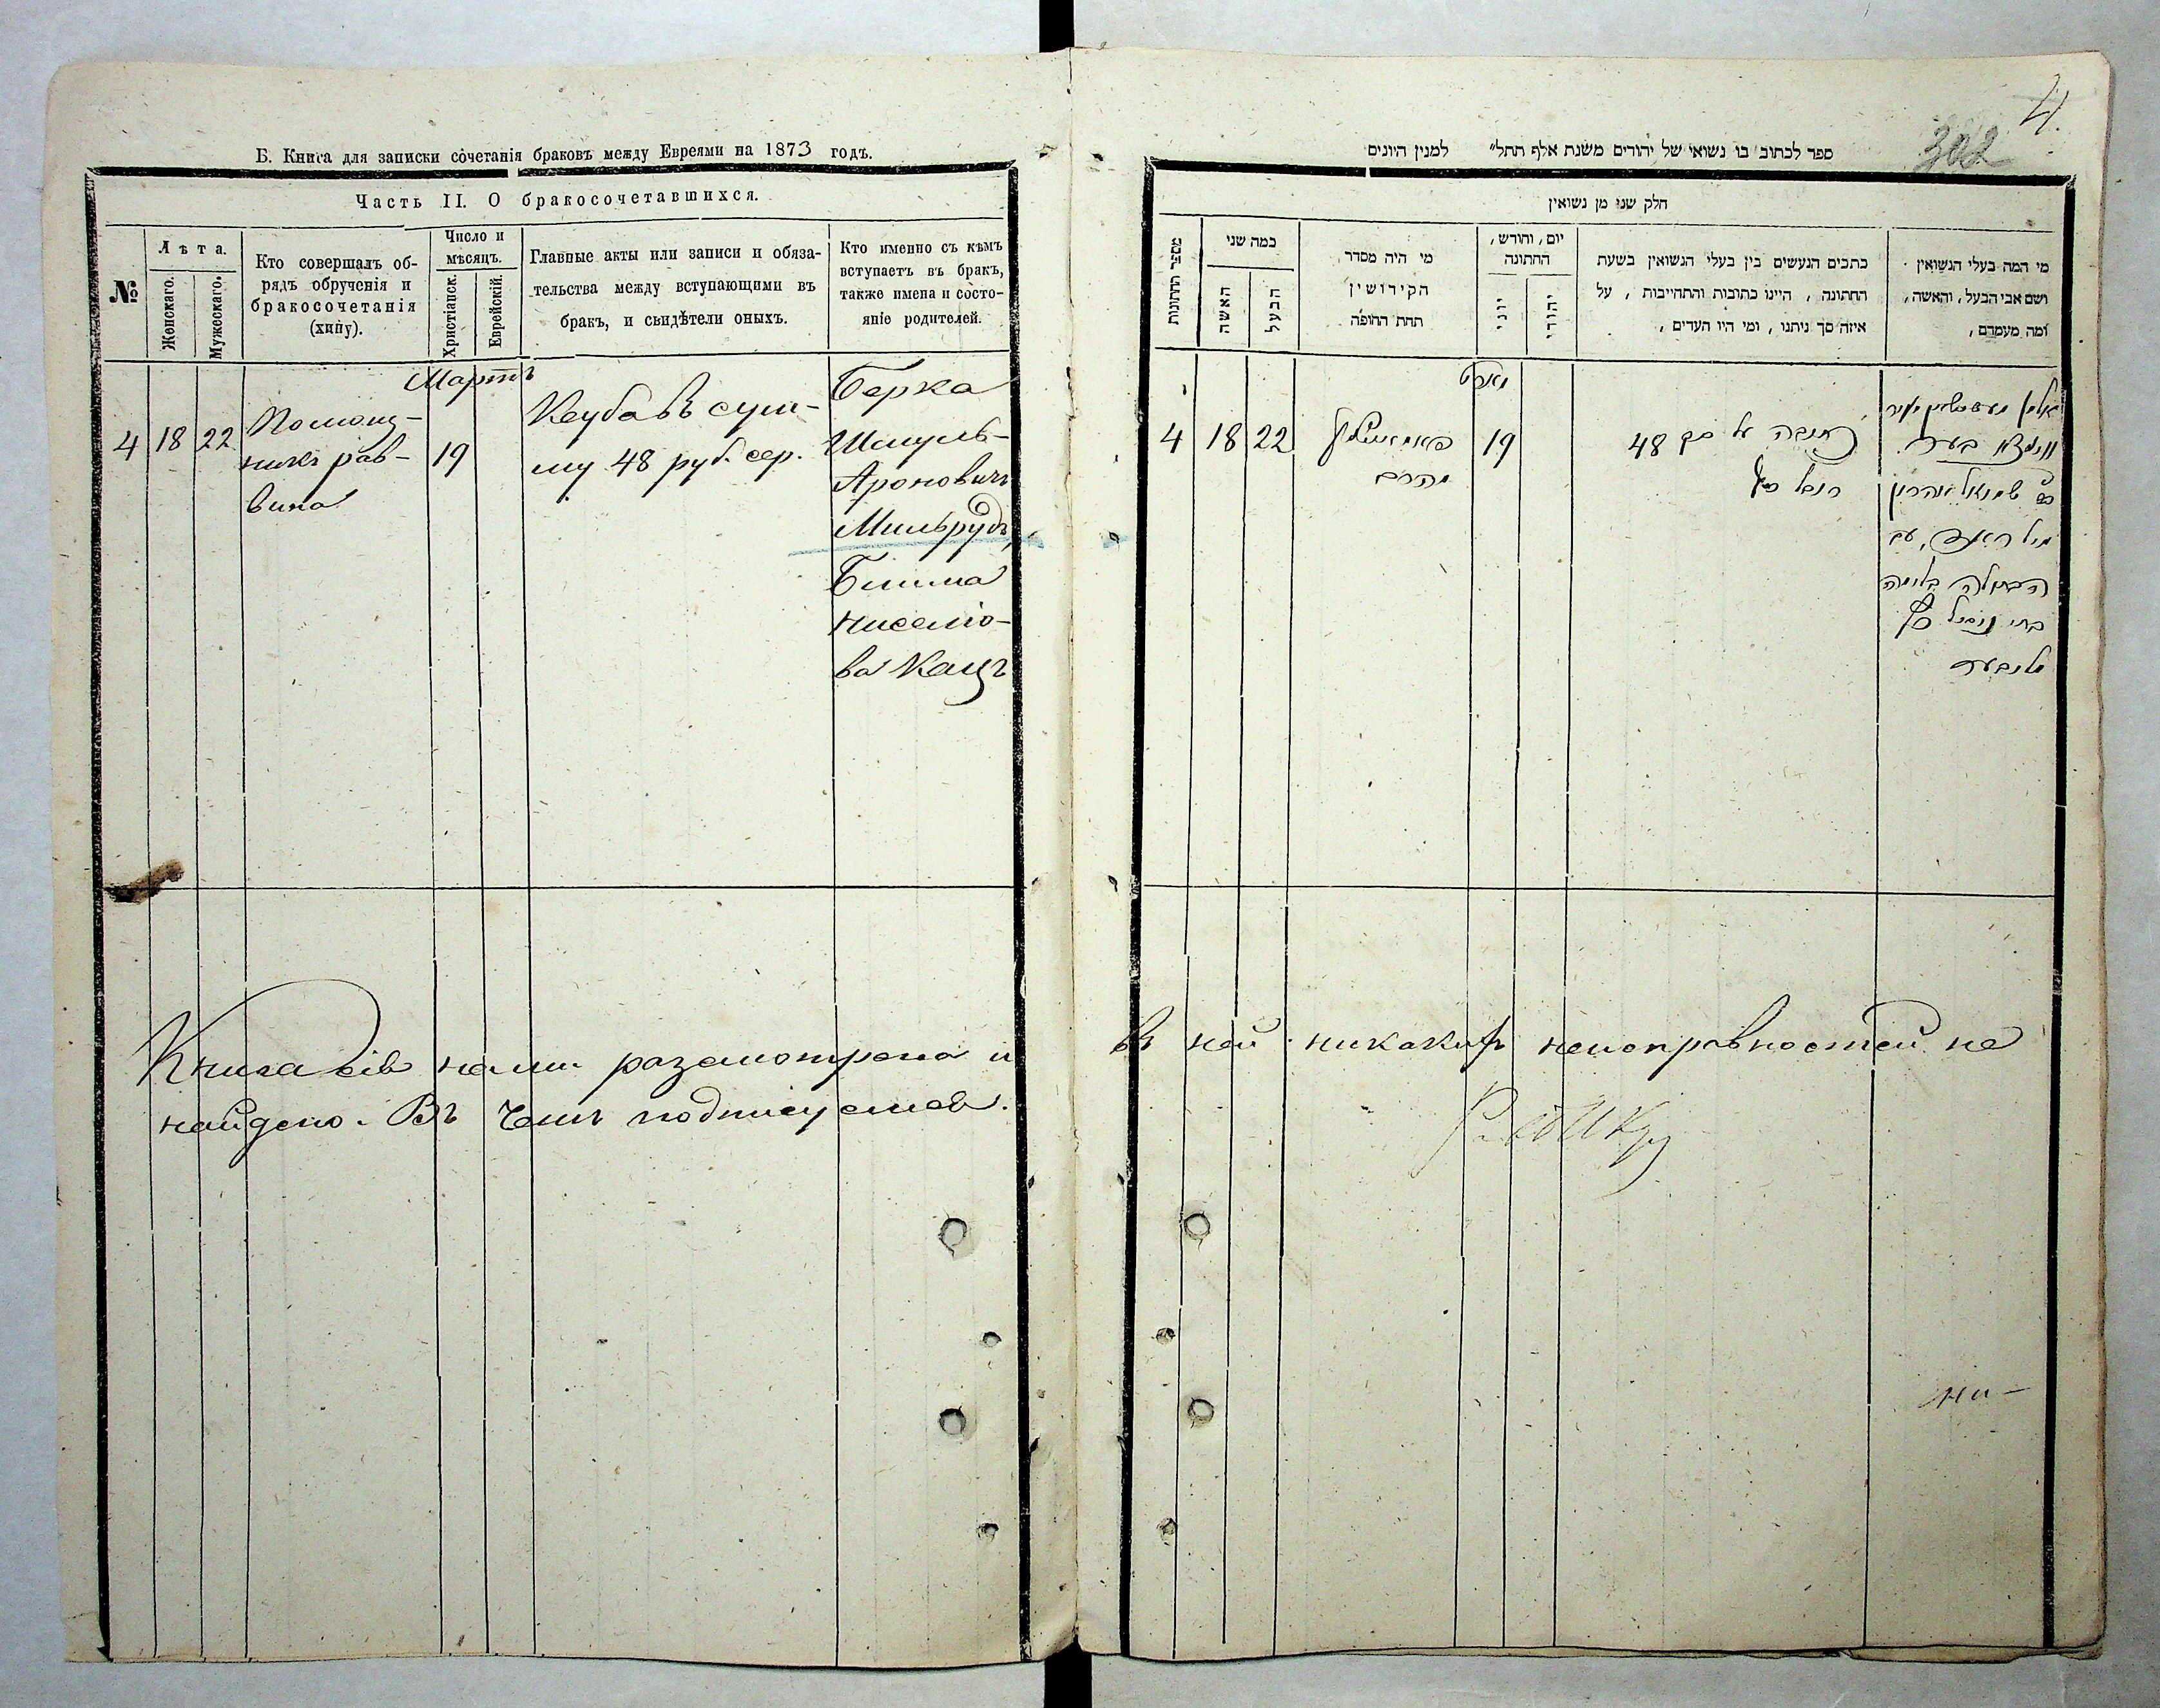 Б. Книга для записки сочетанія браковъ между Евреями на 1873 годъ.
Часть II. О бракосочетавшихся.
№
Лѣта.
Женскаго.
Мужескаго.
Кто совершалъ об-
рядъ обрученія и
бракосочетанія
(хипу).
Число и
мѣсяцъ.
Христіанск.
Еврейскій.
Главные акты или записи и обяза-
тельства между вступающими въ
бракъ, и свидѣтели оныхъ.
Кто именно съ кѣмъ
вступаетъ въ бракъ,
также имена и состо-
яніе родителей.
Мартъ
4 18 22
Помощ-
никъ рав-
вина
19
Кеуба въ сум-
му 48 руб. сер.
Берка
Шмуль-
Ароновичъ
Мильрудъ,
Блюма
Ниселіо-
ва Кацъ
Книга сія нами разсмотрена и
найдено. Въ чемъ подписуемся.
4.
302
ספר לכתוב בו נשואי של יהודים משנת אלף תתל״ למנין היונים
חלק שני מן נשואין
מספר החתונות
כמה שני
האשה
הבעל
מי היה מסדר
הקידושין
תחת החופה
יום, וחודש,
החתונה
יוני
יהודי
כתבים הנעשים בין בעלי הנשואין בשעת
החתונה, היינו כתובות והתחייבות, על
איזה סך ניתנו, ומי היו העדים,
מי המה בעלי הנשואין
ושם אבי הבעל, והאשה,
ומה מעמדם,
מארט
4 18 22
19
כתובה על סך 48
רובל כסף
שמואל אהרון
הבתולה בלומה
בת
в ней никаких неисправностей не
ни-